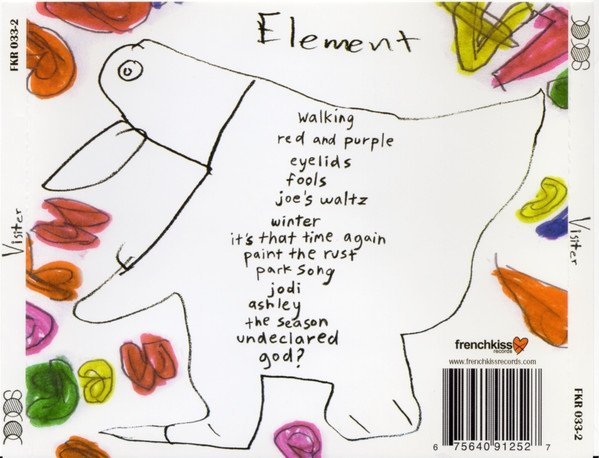 Element
walking
red and purple
eyelids
fools
joe's waltz
winter
it's that time again
paint the rust
park song
jodi
ashley
the season
undeclared
god?
FKR 033-2
Visiter
Visiter
FKR 033-2
frenchkiss
records
www.frenchkissrecords.com
6 75640 91252 7